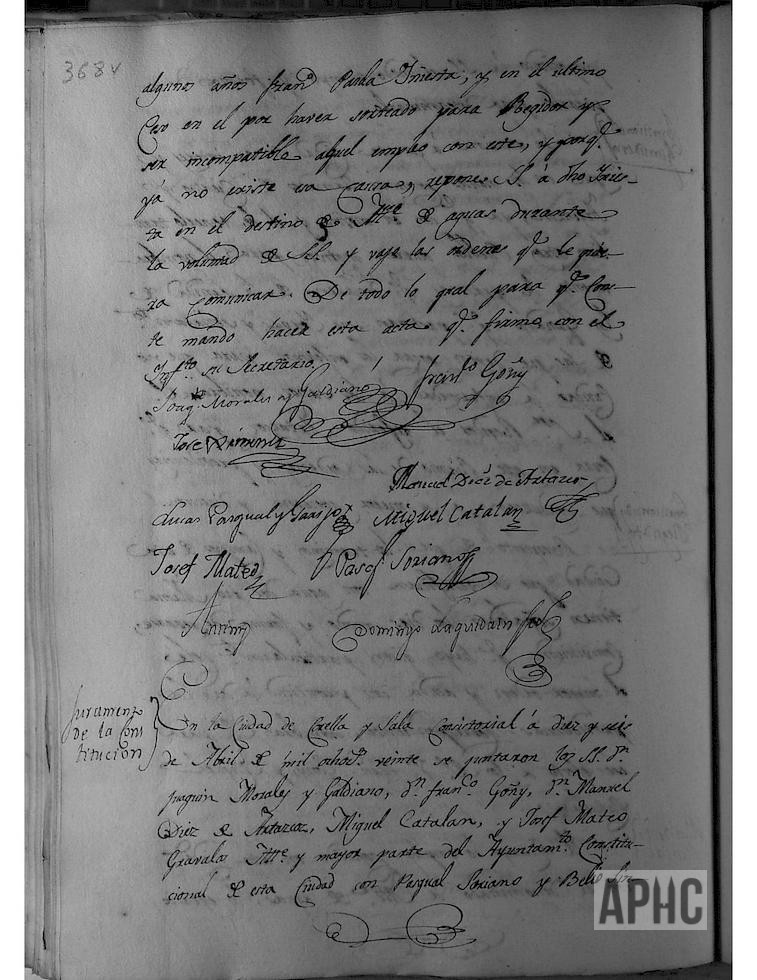 368v
algunos años Fran.co Paula Iñiesta, y en el ultimo
Ceso en el por haver sorteado para Regidor y
ser incompatible aquel empleo con este, y porq.e
yá no existe esa causa, repone S.S. á dho Inies-
ta en el destino de Alc.e de aguas durante
la voluntad de S.S. y vajo las ordenes q.e le quie-
ra comunicar. De todo lo qual para q.e Cons-
te mandó hacer esta acta q.e firmó con el
Infr.to su Secretario.
Joaq.n Morales y Galdiano
Fran.co Goñy
Jose Ximenez
Manuel Diez de Artazcoz
Lucas Pasqual y Garijo
Miguel Catalan
Josef Mateo
Pasq.l Soriano
Antemi
Domingo Laquidain
Juramento
de la Cons
titucion
En la Ciudad de Corella y Sala Consistorial á diez y seis
de Abril de mil ochoz.s veinte se juntaron los SS. d.n
Juaquin Morales y Galdiano, d.n Fran.co Goñy, d.n Manuel
Diez de Artazcoz, Miguel Catalan, y Josef Mateo
Gravalos Alc.e y mayor parte del Ayuntam.to Constitu-
cional de esta Ciudad con Pasqual Soriano y Belio Sin-
APHC